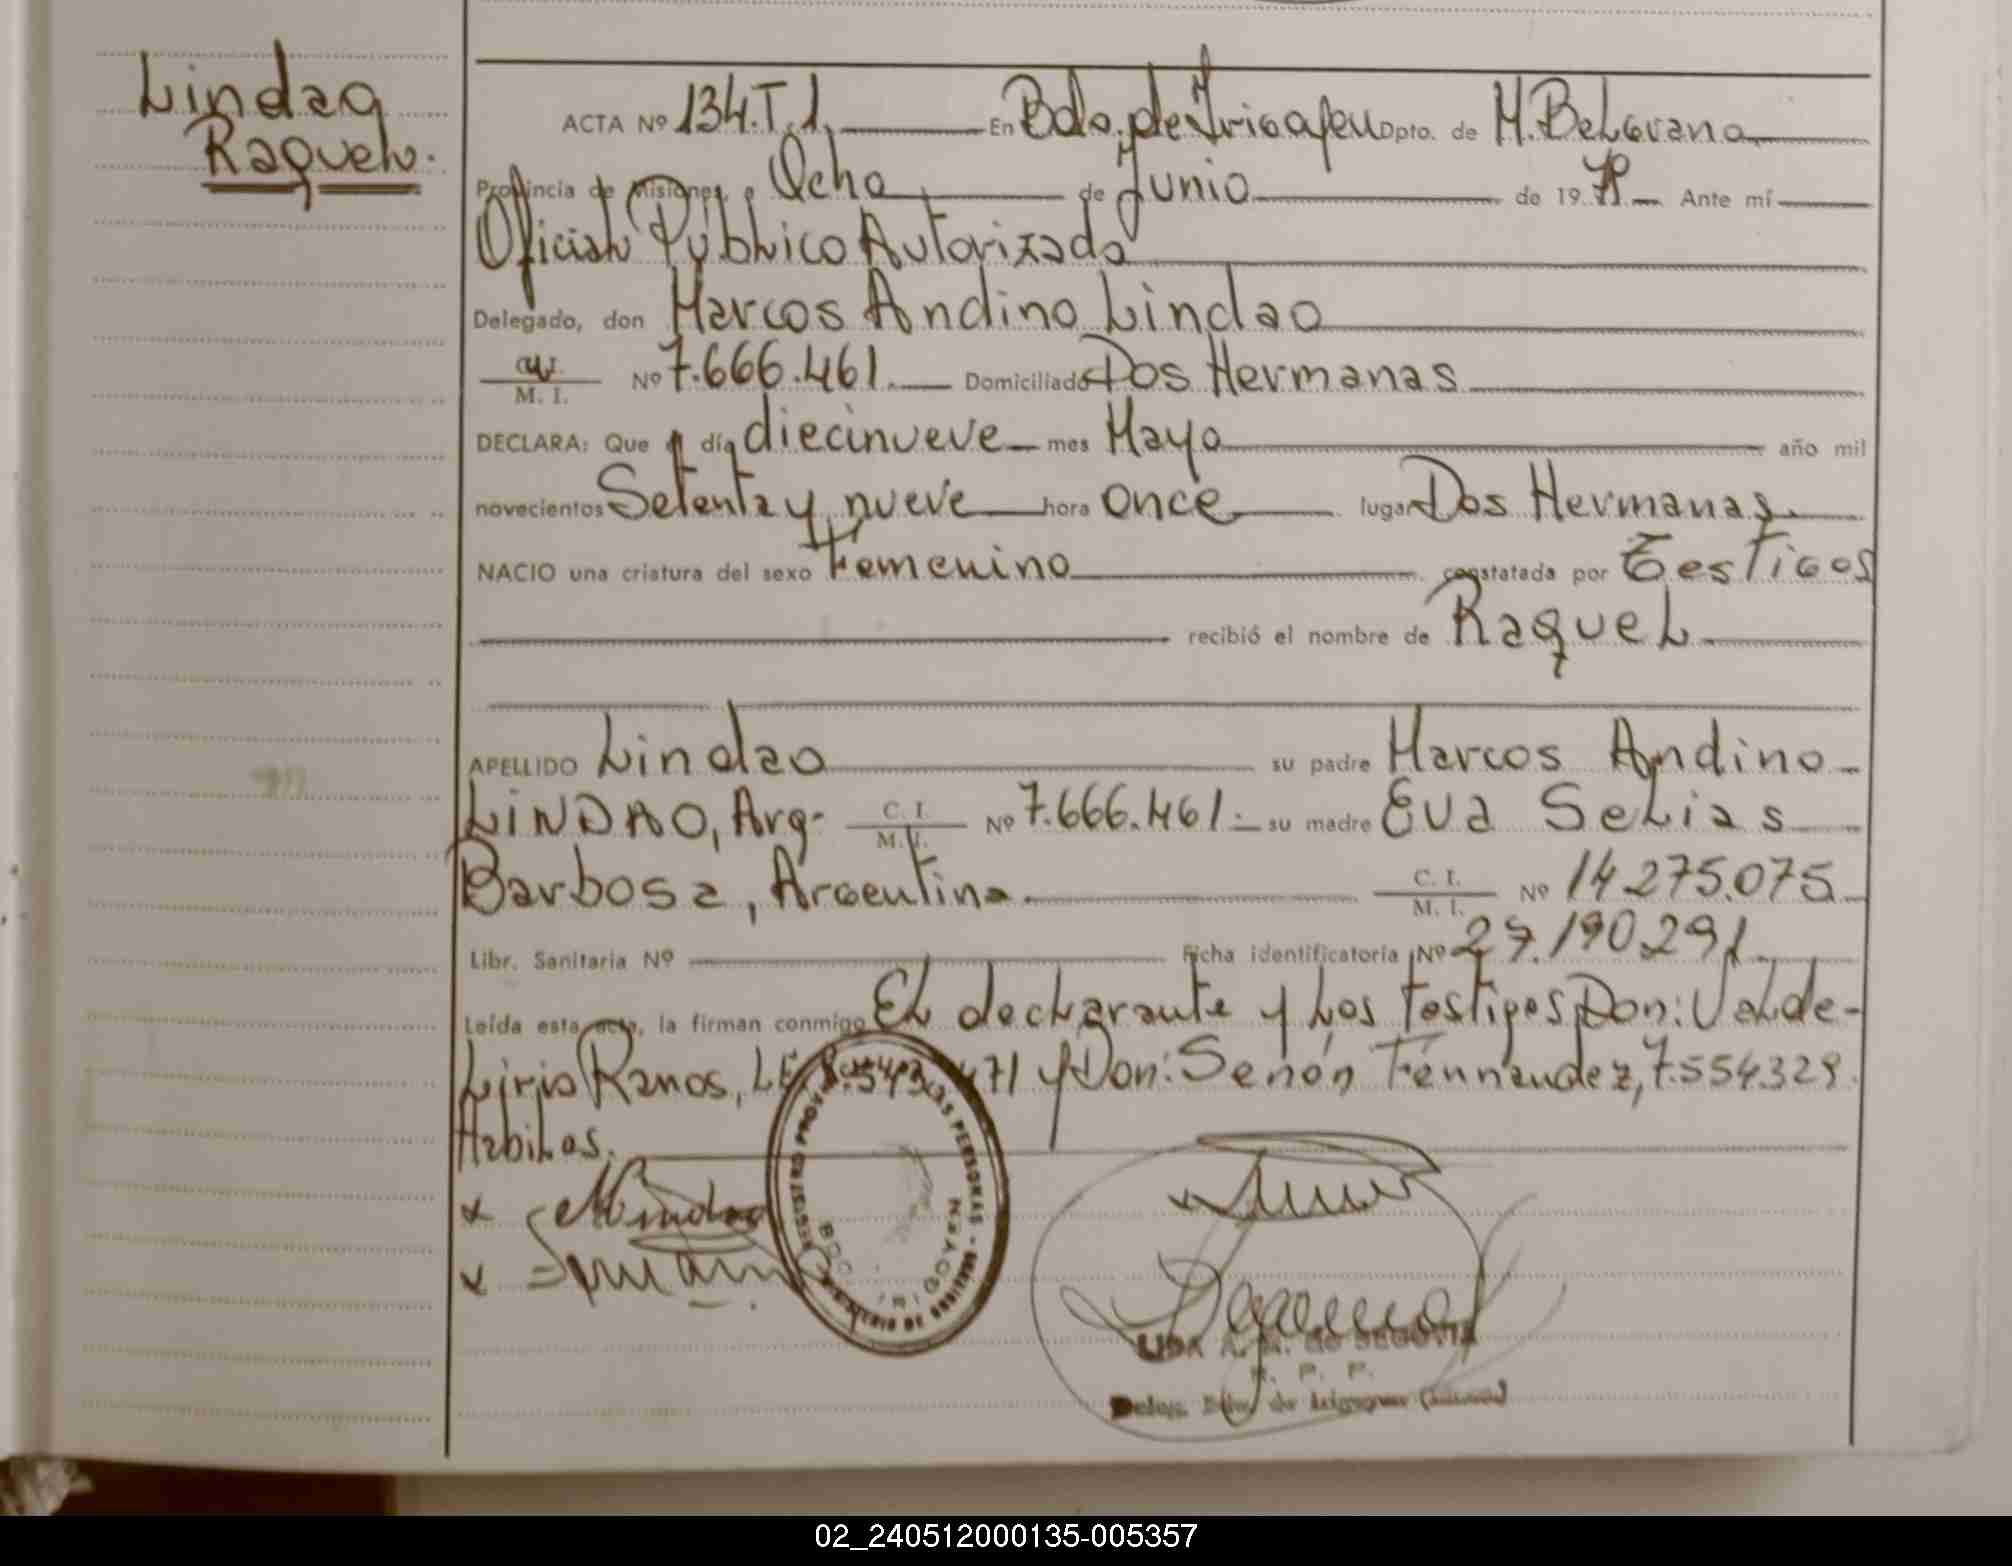 Lindao
Raquel.
ACTA Nº 134.T.1. En Bdo. de Irigoyen Dpto. de M. Belgrano
Provincia de Misiones, a Ocho de Junio de 1979 Ante mí
Oficial Público Autorizado
Delegado, don Marcos Andino Lindao
M. I. Nº 7.666.461. Domiciliado Dos Hermanas
DECLARA: Que el día diecinueve mes Mayo año mil
novecientos Setenta y nueve hora Once lugar Dos Hermanas.
NACIO una criatura del sexo Femenino constatada por Testigos
recibió el nombre de Raquel
APELLIDO Lindao su padre Marcos Andino
LINDAO, Arg. C. I. M. I. Nº 7.666.461. su madre Eva Selias
Barbosa, Argentina C. I. M. I. Nº 14.275.075
Libr. Sanitaria Nº Ficha identificatoria Nº 27.190.291
Leída esta acta, la firman conmigo El declarante y los testigos Don: Valde-
Lirio Ramos, LE. 471 y Don: Senón Fernnandez, 7.554.329.
Habiles.
x
x
REGISTRO PROV. DE LAS PERSONAS - MINISTERIO DE GOBIERNO
BDO. IRIGOYEN
LIDA A. M. de SEGOVIA
R. P. P.
Deleg. Bdo. de Irigoyen (Misiones)
02_240512000135-005357